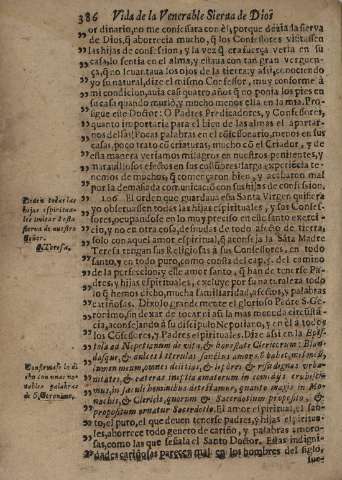 386 Vida de la Venerable Sierua de Dios
or dinario, no me confessara con èl, porque dezia la sierva
de Dios, q̃ aborrecia mucho, q̃ los Confessores visitassen
las hijas de confession, y la vez q̃ era fuerça verla en su
casa, lo sentia en el alma, y estaua con tan gran verguen-
ça, q̃ no leuantaua los ojos de la tierra; y assi, conociendo
yo su natural, dize el mismo Confessor, muy conforme à
mi condicion, auia casi quatro años q̃ no ponia los pies en
su casa quando muriò, y mucho menos ella en la mia. Pro-
sigue este Doctor: O Padres Predicadores, y Confessores,
quanto importaria para el bien de las almas el apartar-
nos dessas! Pocas palabras en el cõfessionario, menos en sus
casas, poco trato cõ criaturas, mucho cõ el Criador, y de
essa manera veriamos milagros en nuestros penitentes, y
marauillosos efectos en sus costũbres larga experiẽcia te-
nemos de muchos, q̃ començaron bien, y acabaron mal
por la demasiada comunicaciõ con sus hijas de confession.
106 El orden que guardaua esta Santa Virgen quisiera
yo obseruassen todas las hijas espirituales, y sus Confes-
sores, ocupandose en lo muy preciso en este santo exerci-
cio, y no en otra cosa, desnudas de todo afecto de tierra,
solo con aquel amor espiritual, q̃ aconseja la Sãta Madre
Teresa tengan sus Religiosas à sus Confessores, en todo
santo, y en todo puro, como consta del cap. 5. del camino
de la perfeccion; y este amor santo, q̃ han de tenerse Pa-
dres, y hijas espirituales, excluye por su naturaleza todo
lo q̃ hemos dicho, mucha familiaridad, afectos, y palabras
cariñosas. Dixolo grandemente el glorioso Padre S. Ge-
ronimo, sin dexar de tocar ni aũ la mas menuda circũstã-
cia, aconsejando à su discipulo Nepociano, y en èl à todos
los Cõfessores, y Padres espirituales. Dize assi en la Epist-
ola ad Nepotianum de vita, & honestate Clericorum:
Pidẽn todas las
hijas espiritua-
les imitar à esta
sierva de nuestro
Señor.
S. Teresa.
Confirmase lo di-
cho con unas no-
tables palabras
de S. Geronimo.
propositum ornatur Sacerdotis. El amor espiritual, el san-
to, el puro, el que deuen tenerse padres, y hijas espiritua-
les, aborrece todo genero de cariño, y palabras amoro-
sas, como las que señala el Santo Doctor. Estas indigni-
dades cariñosas parecen mal en los hombres del siglo,